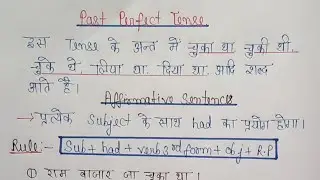 Past Perfect Tense
इस Tense के अन्त में चुका था, चुकी थी,
चुके थे, लिया था, दिया था, आदि शब्द
आते हैं।
Affirmative Sentence
→ प्रत्येक Subject के साथ had का प्रयोग होगा।
Rule:- Sub + had + verb 3rd form + obj + R.P
① राम बाजार जा चुका था।